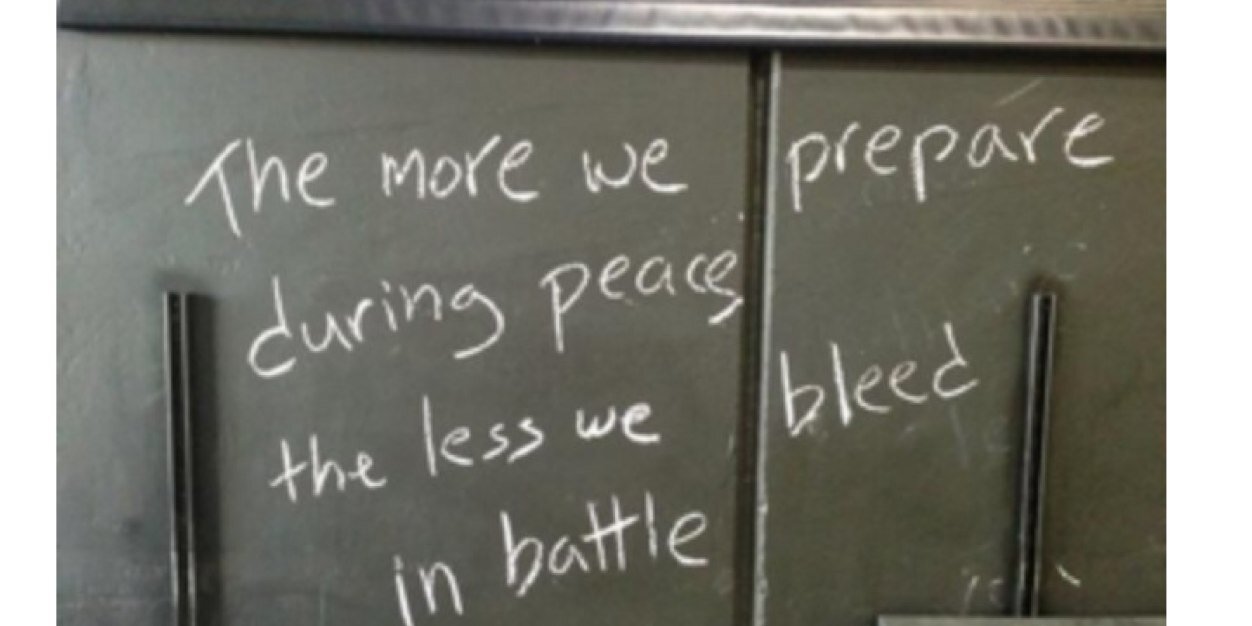 The more we prepare
during peace
the less we bleed
in battle